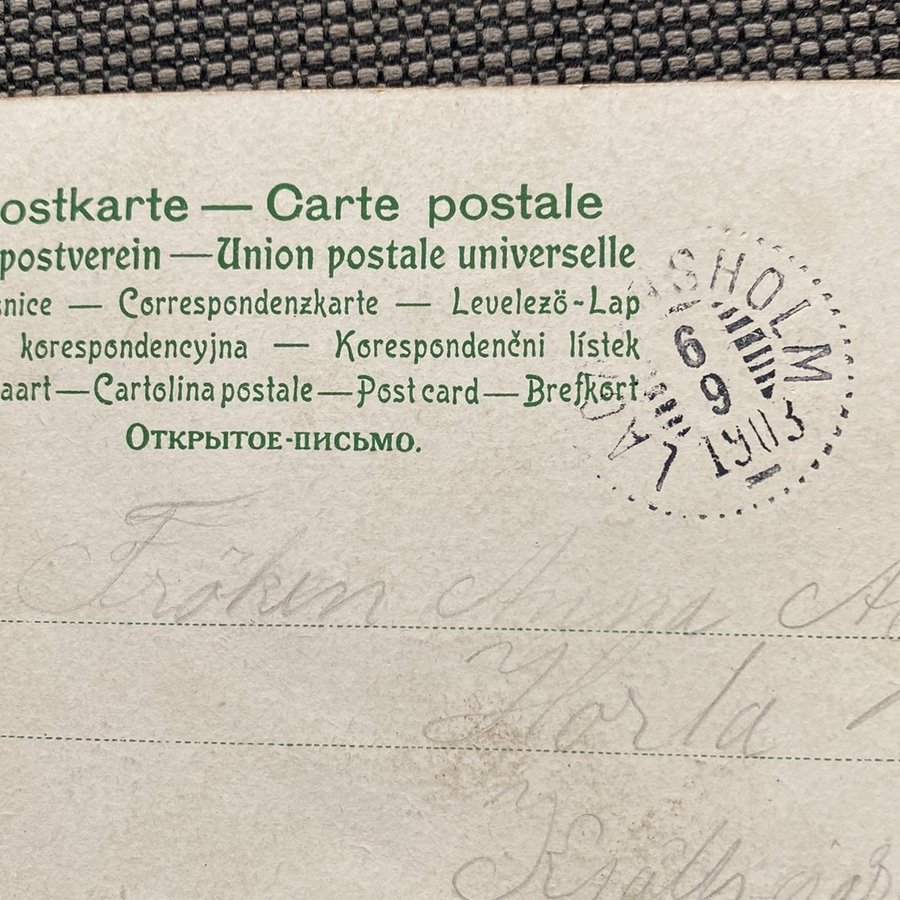 ostkarte — Carte postale
postverein — Union postale universelle
snice — Correspondenzkarte — Levelező-Lap
korespondencyjna — Korespondenčni lístek
aart — Cartolina postale — Post card — Brefkort
Открытое-письмо.
LA SHOLM
6
9
1903
Fröken Anna A
Horla